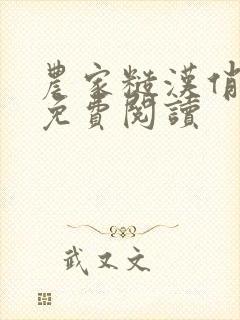 農家糙漢俏
免費閱讀
武又文